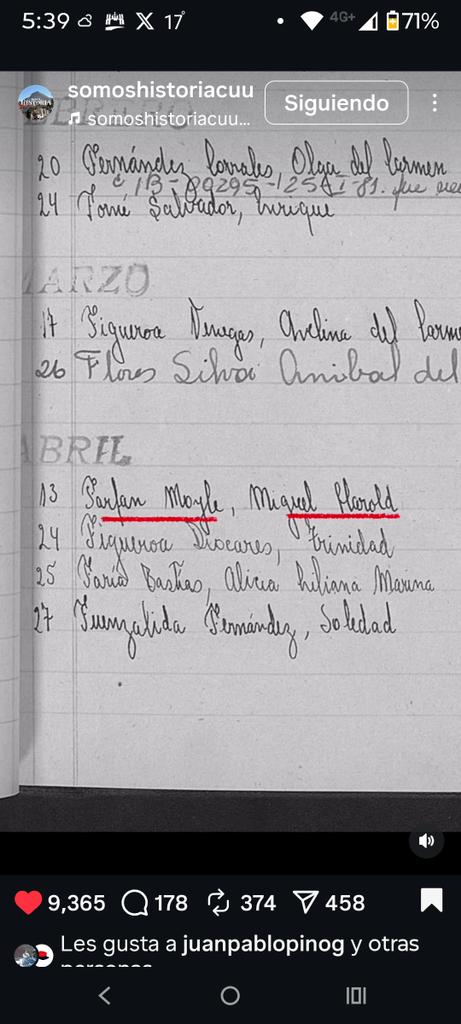 5:39 X 17° 4G+ 71%
somoshistoriacuu
Siguiendo
somoshistoriacuu...
20 Fernández Corrales, Olga del Carmen
24 Tomé Salvador, Enrique
MARZO
17 Figueroa Venegas, Avelina del
26 Flores Silva Anibal del
ABRIL
13 Farfan Moyle, Miguel Harold
24 Figueroa Diocares, Trinidad
25 Faría Bastías, Alicia Liliana Marina
27 Fuenzalida Fernández, Soledad
9,365 178 374 458
Les gusta a juanpablopinog y otras